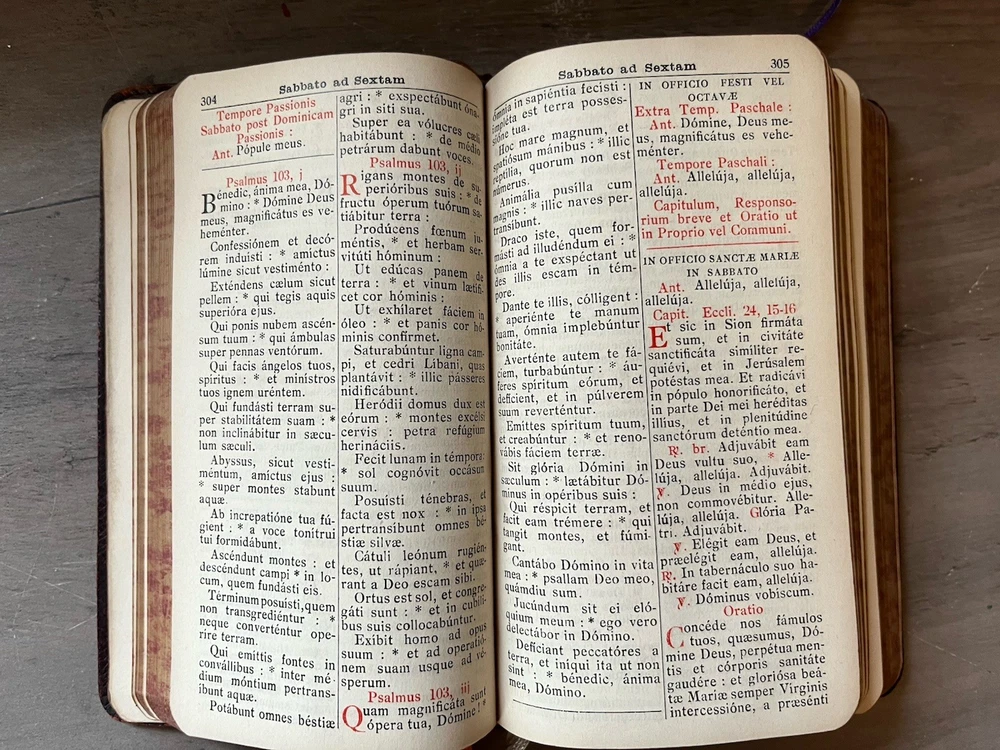 304
Sabbato ad Sextam
Tempore Passionis
Sabbato post Dominicam
Passionis :
Ant. Pópule meus.
Psalmus 103, j
Bénedic, ánima mea, Dó-
mino : * Dómine Deus
meus, magnificátus es ve-
heménter.
Confessiónem et decó-
rem induísti : * amictus
lúmine sicut vestiménto :
Exténdens cælum sicut
pellem : * qui tegis aquis
superióra ejus.
Qui ponis nubem ascén-
sum tuum : * qui ámbulas
super pennas ventórum.
Qui facis ángelos tuos,
spíritus : * et minístros
tuos ignem uréntem.
Qui fundásti terram su-
per stabilitátem suam : *
non inclinábitur in sæcu-
lum sæculi.
Abyssus, sicut vesti-
méntum, amictus ejus :
* super montes stabunt
aquæ.
Ab increpatióne tua fú-
gient : * a voce tonítrui
tui formidábunt.
Ascéndunt montes : et
descéndunt campi * in lo-
cum, quem fundásti eis.
Términum posuísti, quem
non transgrediéntur : *
neque converténtur ope-
ríre terram.
Qui emíttis fontes in
convállibus : * inter mé-
dium móntium pertrans-
íbunt aquæ.
Potábunt omnes béstiæ
agri : * exspectábunt óna-
gri in siti sua.
Super ea vólucres cæli
habitábunt : * de médio
petrárum dabunt voces.
Psalmus 103, ij
Rigans montes de su-
perióribus suis : * de
fructu óperum tuórum sa-
tiábitur terra :
Prodúcens fœnum ju-
méntis, * et herbam ser-
vitúti hóminum :
Ut edúcas panem de
terra : * et vinum lætífi-
cet cor hóminis :
Ut exhílaret fáciem in
óleo : * et panis cor hó-
minis confírmet.
Saturabúntur ligna cam-
pi, et cedri Líbani, quas
plantávit : * illic pásseres
nidificábunt.
Heródii domus dux est
eórum : * montes excélsi
cervis : petra refúgium
herináciis.
Fecit lunam in témpora :
* sol cognóvit occásum
suum.
Posuísti ténebras, et
facta est nox : * in ipsa
pertransíbunt omnes bé-
stiæ silvæ.
Cátuli leónum rugién-
tes, ut rápiant, * et quæ-
rant a Deo escam sibi.
Ortus est sol, et congre-
gáti sunt : * et in cubíli-
bus suis collocabúntur.
Exíbit homo ad opus
suum : * et ad operatió-
nem suam usque ad vé-
sperum.
Psalmus 103, iij
Quam magnificáta sunt
ópera tua, Dómine ! *
Sabbato ad Sextam
305
ómnia in sapiéntia fecísti :
impléta est terra posses-
sióne tua.
Hoc mare magnum, et
spatiósum mánibus : * illic
reptília, quorum non est
númerus.
Animália pusílla cum
magnis : * illic naves per-
transíbunt.
Draco iste, quem for-
másti ad illudéndum ei : *
ómnia a te exspéctant ut
des illis escam in tém-
pore.
Dante te illis, cólligent :
* aperiénte te manum
tuam, ómnia implebúntur
bonitáte.
Averténte autem te fá-
ciem, turbabúntur : * áu-
feres spíritum eórum, et
defícient, et in púlverem
suum reverténtur.
Emíttes spíritum tuum,
et creabúntur : * et reno-
vábis fáciem terræ.
Sit glória Dómini in
sæculum : * lætábitur Dó-
minus in opéribus suis :
Qui réspicit terram, et
facit eam trémere : * qui
tangit montes, et fúmi-
gant.
Cantábo Dómino in vita
mea : * psallam Deo meo,
quámdiu sum.
Jucúndum sit ei eló-
quium meum : * ego vero
delectábor in Dómino.
Defíciant peccatóres a
terra, et iníqui ita ut non
sint : * bénedic, ánima
mea, Dómino.
IN OFFICIO FESTI VEL
OCTAVÆ
Extra Temp. Paschale :
Ant. Dómine, Deus me-
us, magnificátus es vehe-
ménter.
Tempore Paschali :
Ant. Allelúja, allelúja,
allelúja.
Capitulum, Responso-
rium breve et Oratio ut
in Proprio vel Communi.
IN OFFICIO SANCTÆ MARIÆ
IN SABBATO
Ant. Allelúja, allelúja,
allelúja.
Capit. Eccli. 24, 15-16
Et sic in Sion firmáta
sum, et in civitáte
sanctificáta simíliter re-
quiévi, et in Jerúsalem
potéstas mea. Et radicávi
in pópulo honorificáto, et
in parte Dei mei heréditas
illíus, et in plenitúdine
sanctórum deténtio mea.
℟. br. Adjuvábit eam
Deus vultu suo, * Alle-
lúja, allelúja. Adjuvábit.
℣. Deus in médio ejus,
non commovébitur. Alle-
lúja, allelúja. Glória Pa-
tri. Adjuvábit.
℣. Elégit eam Deus, et
præelégit eam, allelúja.
℟. In tabernáculo suo ha-
bitáre facit eam, allelúja.
℣. Dóminus vobíscum.
Oratio
Concéde nos fámulos
tuos, quǽsumus, Dó-
mine Deus, perpétua men-
tis et córporis sanitáte
gaudére : et gloriósa beá-
tæ Maríæ semper Vírginis
intercessióne, a præsénti